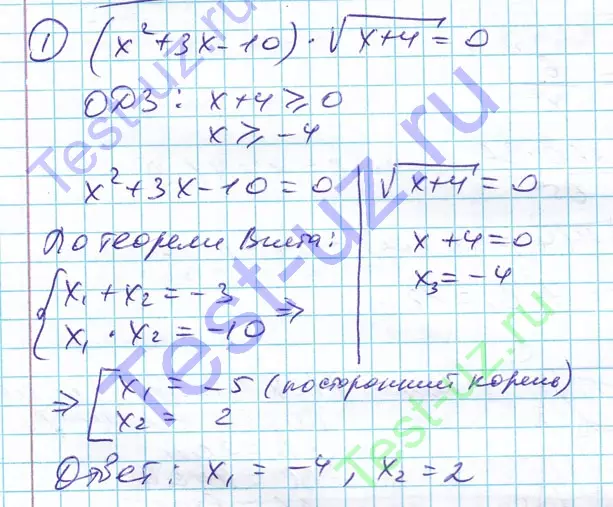 ① (x²+3x-10)·√(x+4) = 0
ОДЗ: x+4 ⩾ 0
x ⩾ -4
x²+3x-10=0 | √(x+4) = 0
По теореме Виета: | x+4=0
{ x₁+x₂ = -3 | x₃ = -4
x₁·x₂ = -10 ⇒
⇒ [ x₁ = -5 (посторонний корень)
x₂ = 2
Ответ: x₁ = -4, x₂ = 2
Test-uz.ru
Test-uz.ru
Test-uz.ru